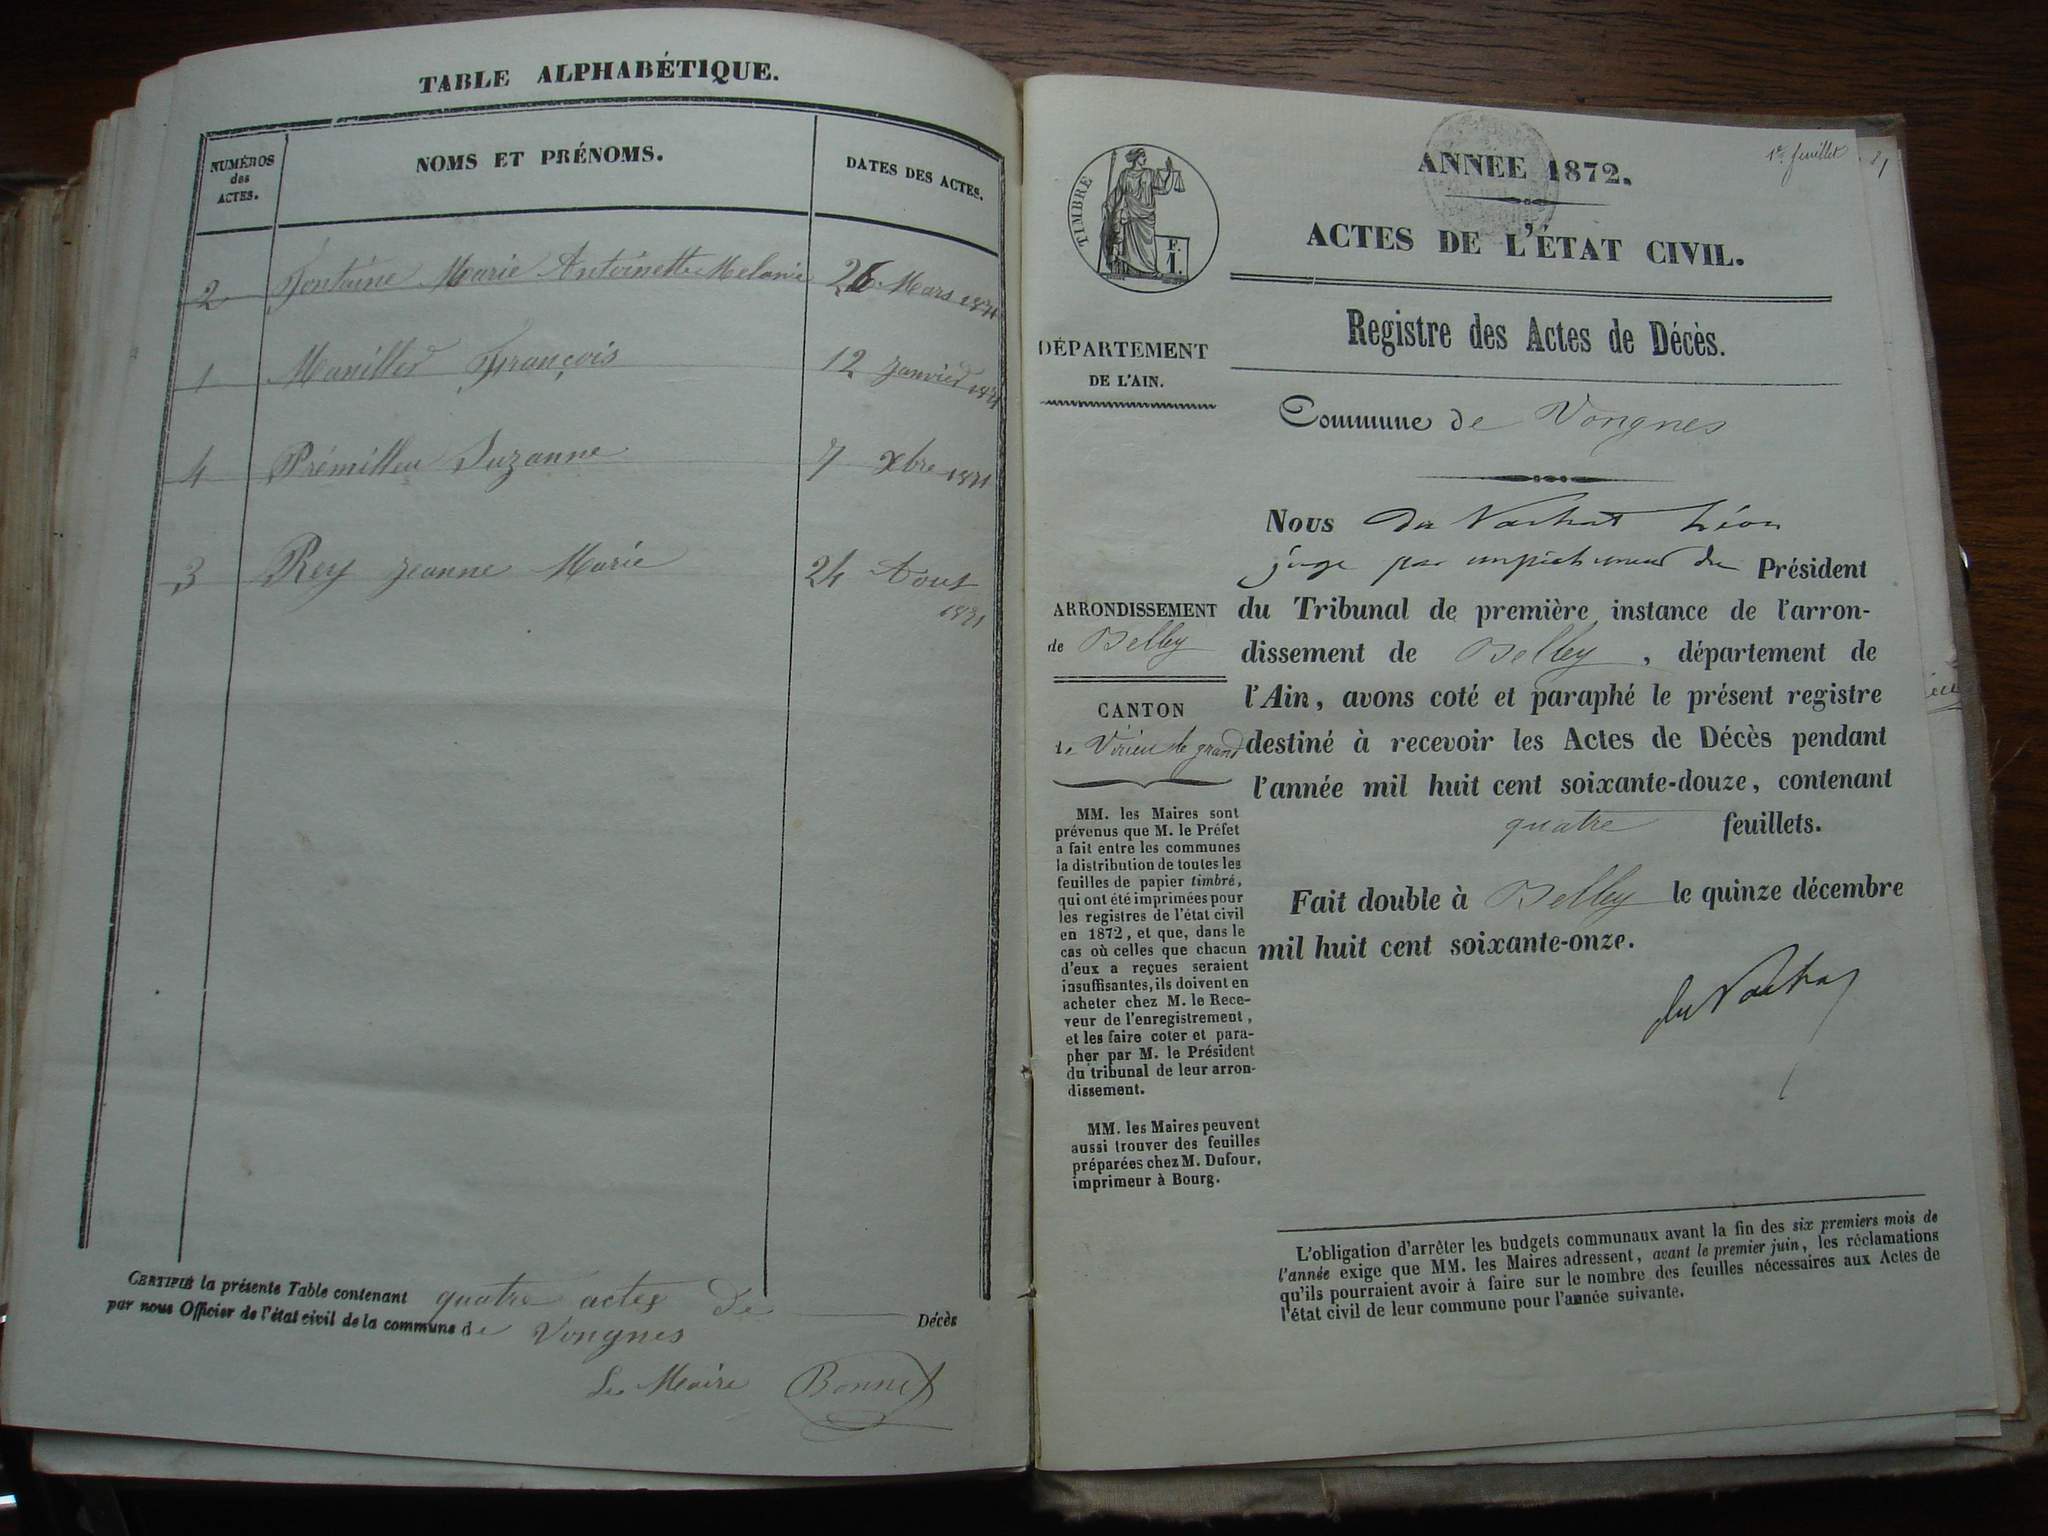 TABLE ALPHABÉTIQUE.
NUMÉROS
des
ACTES.
NOMS ET PRÉNOMS.
DATES DES ACTES.
2 Fontaine Marie Antoinette Melanie 26 Mars 1871
1 François 12 Janvier 1871
4 Prémillieu Suzanne 7 xbre 1871
3 Rey Jeanne Marie 24 Aout
1871
CERTIFIÉ la présente Table contenant quatre actes de Décès
par nous Officier de l'état civil de la commune de Vongnes
Le Maire Bonnet
1er feuillet
ANNÉE 1872.
ACTES DE L'ÉTAT CIVIL.
TIMBRE
F.
I.
Registre des Actes de Décès.
DÉPARTEMENT
DE L'AIN.
Commune de Vongnes
Nous du Vachat Léon
juge par empêchement du Président
du Tribunal de première instance de l'arron-
dissement de Belley, département de
l'Ain, avons coté et paraphé le présent registre
destiné à recevoir les Actes de Décès pendant
l'année mil huit cent soixante-douze, contenant
quatre feuillets.
Fait double à Belley le quinze décembre
mil huit cent soixante-onze.
du Vachat
ARRONDISSEMENT
de Belley
CANTON
de Virieu le grand
MM. les Maires sont
prévenus que M. le Préfet
a fait entre les communes
la distribution de toutes les
feuilles de papier timbré,
qui ont été imprimées pour
les registres de l'état civil
en 1872, et que, dans le
cas où celles que chacun
d'eux a reçues seraient
insuffisantes, ils doivent en
acheter chez M. le Rece-
veur de l'enregistrement,
et les faire coter et para-
pher par M. le Président
du tribunal de leur arron-
dissement.
MM. les Maires peuvent
aussi trouver des feuilles
préparées chez M. Dufour,
imprimeur à Bourg.
L'obligation d'arrêter les budgets communaux avant la fin des six premiers mois de
l'année exige que MM. les Maires adressent, avant le premier juin, les réclamations
qu'ils pourraient avoir à faire sur le nombre des feuilles nécessaires aux Actes de
l'état civil de leur commune pour l'année suivante.